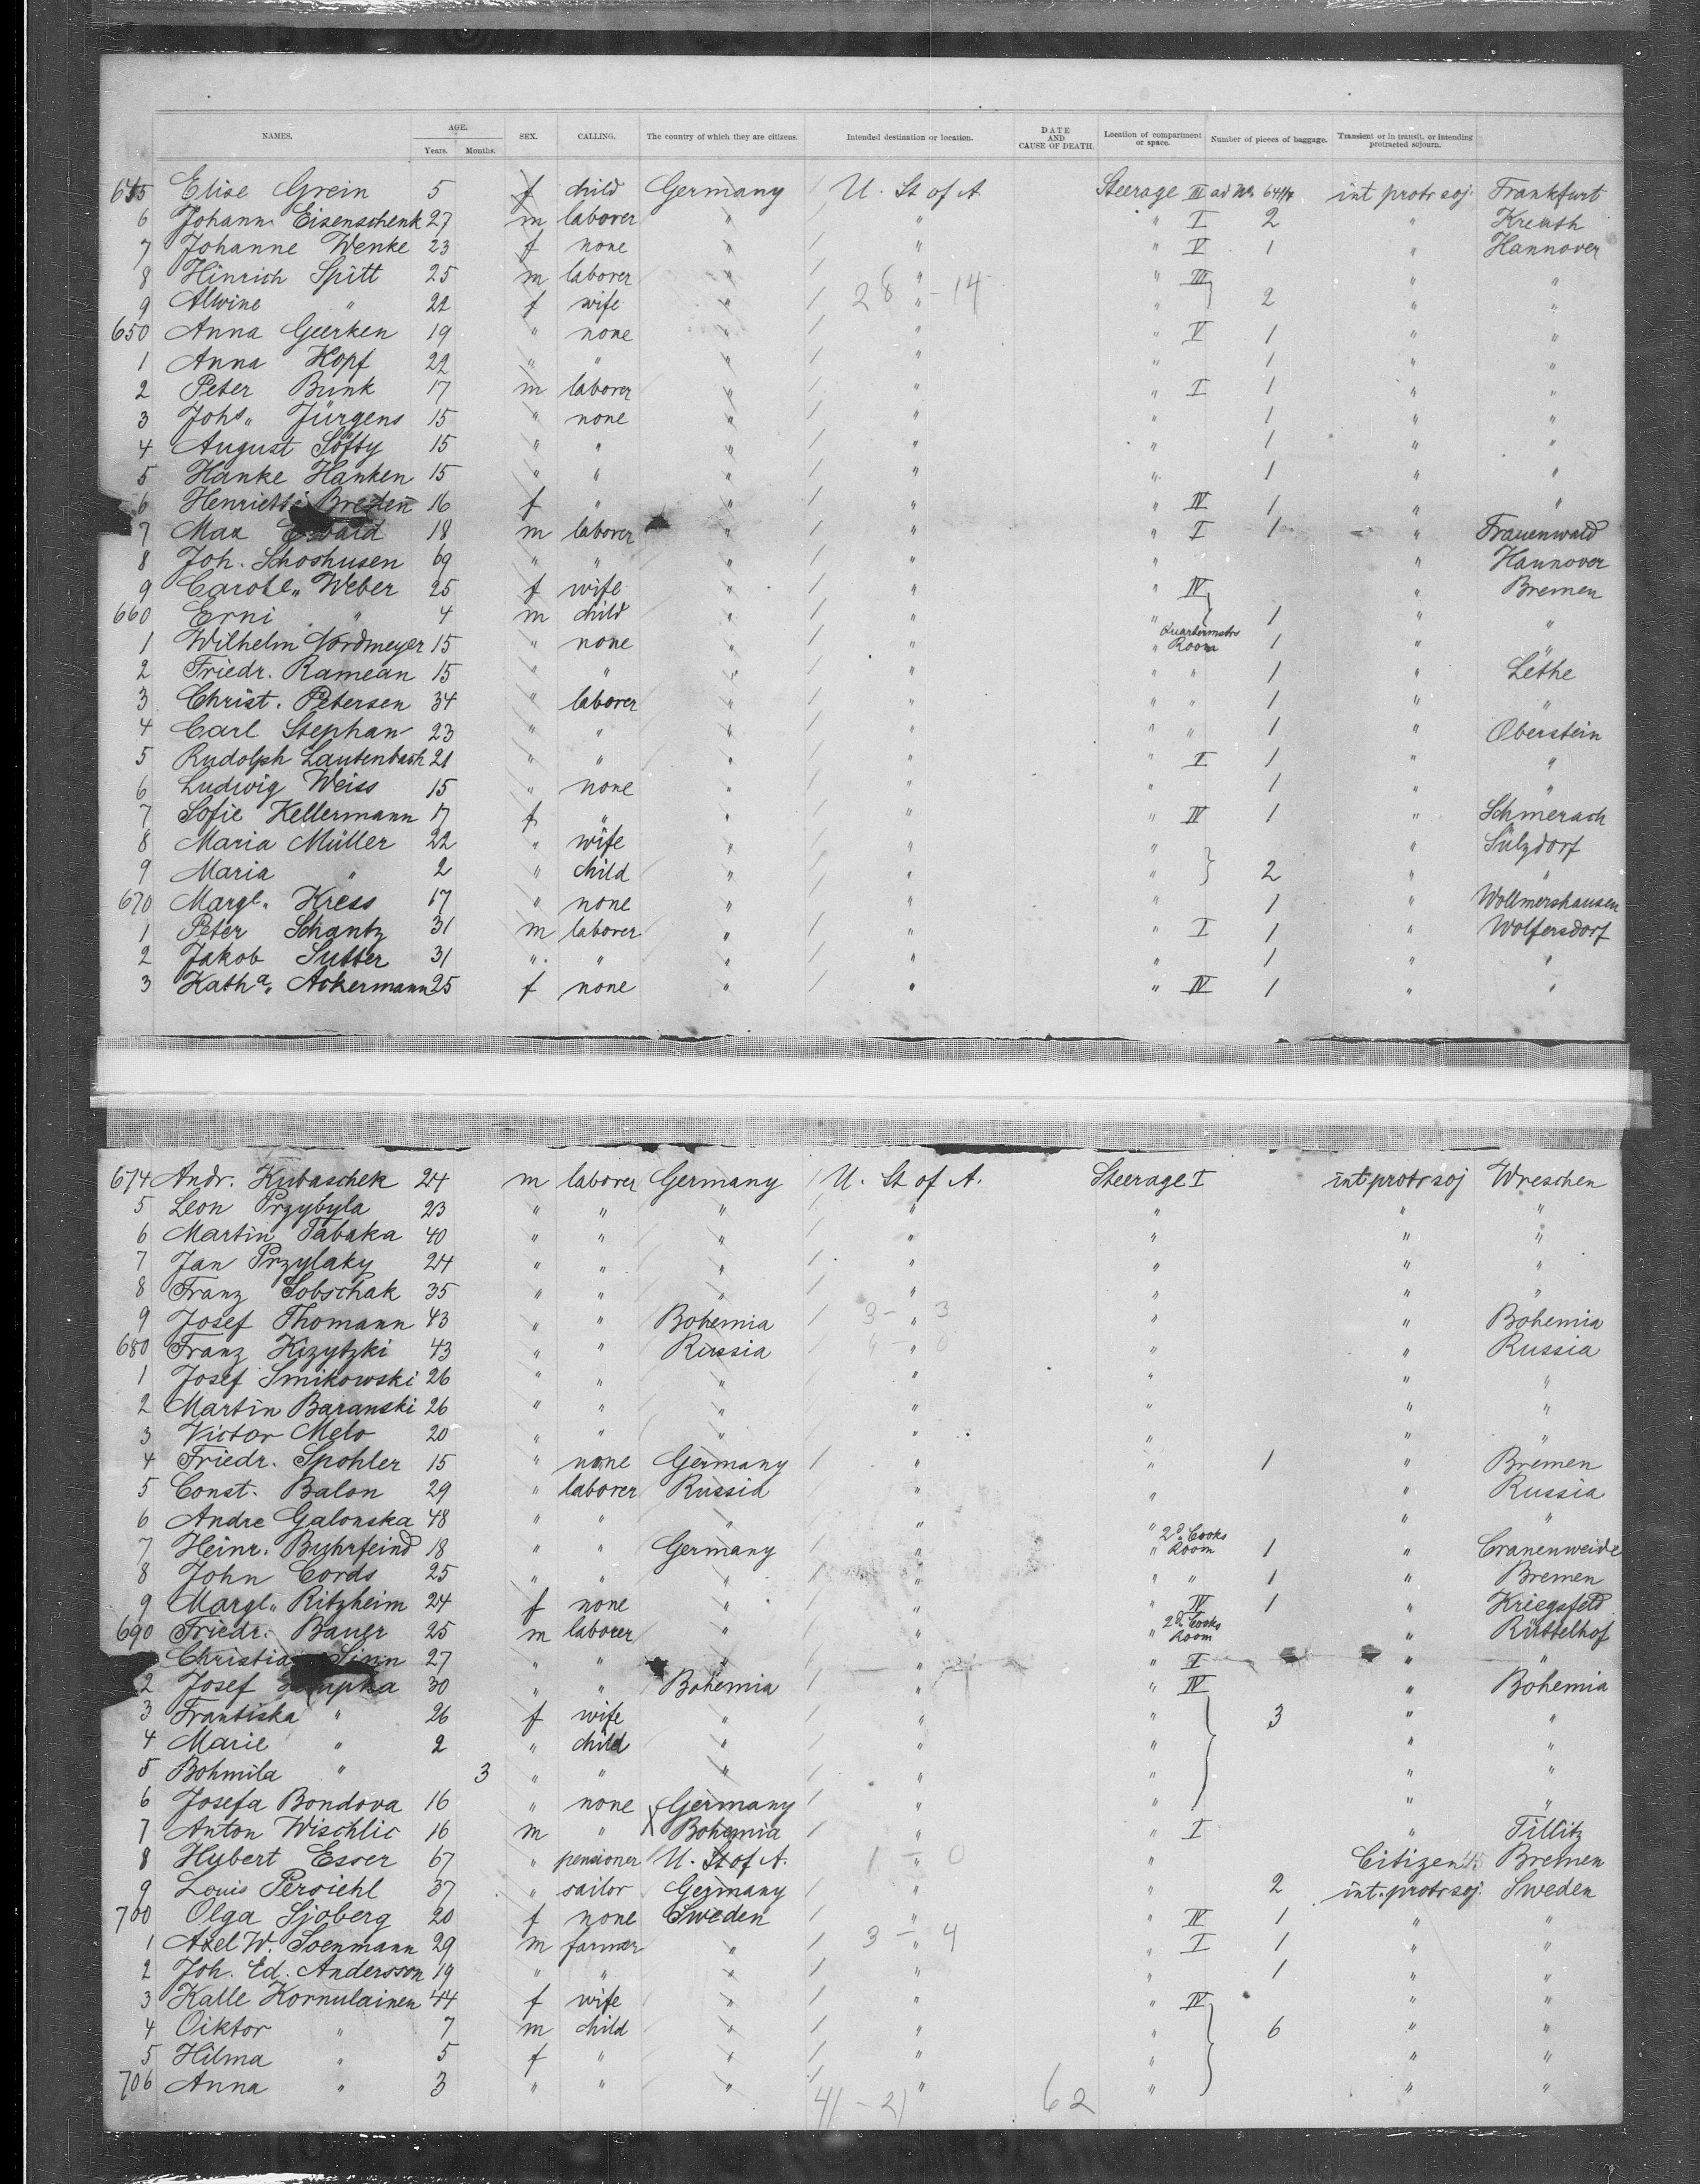 NAMES. AGE. Years. Months. SEX. CALLING. The country of which they are citizens. Intended destination or location. DATE AND CAUSE OF DEATH. Location of compartment or space. Number of pieces of baggage. Transient or in transit, or intending protracted sojourn.
645 Elise Grein 5 f child Germany / U. St of A Steerage III ad No 641/4 int protr soj. Frankfurt
6 Johann Eisenschenk 27 m laborer " / " " I 2 " Kreuth
7 Johanne Wenke 23 f none " / " " V 1 " Hannover
8 Hinrich Spitt 25 m laborer " / " " III " "
9 Alwine " 22 f wife " / 28 " - 14 " } 2 " "
650 Anna Geerken 19 " none " / " " V 1 " "
1 Anna Hopf 22 " " " / " " 1 " "
2 Peter Bunk 17 m laborer " / " " I 1 " "
3 Johs" Jürgens 15 " none " / " " 1 " "
4 August Söfty 15 " " " / " " 1 " "
5 Hanke Hanken 15 " " " / " " 1 " "
6 Breden 16 f " " / " " IV 1 " "
7 Max 18 m laborer " / " " I 1 " Frauenwald
8 Joh. Schoshusen 69 " " " / " " " Hannover
9 Carole" Weber 25 f wife " / " " IV " Bremen
660 Erni " 4 m child " / " " } 1 " "
1 Wilhelm Nordmeyer 15 " none " / " " Quartermstrs Room 1 "
2 Friedr. Ramean 15 " " " / " " " 1 " Lethe
3 Christ. Petersen 34 " laborer " / " " " 1 " "
4 Carl Stephan 23 " " " / " " " 1 " Oberstein
5 Rudolph Lautenbach 21 " " " / " " I 1 " "
6 Ludwig Weiss 15 " none " / " " 1 " "
7 Sofie Kellermann 17 f " " / " " IV 1 " Schmerach
8 Maria Müller 22 " wife " / " " " Sülzdorf
9 Maria " 2 " child " / " " } 2 " "
670 Margl" Kress 17 " none " / " " 1 " Wollmershausen
1 Peter Schantz 31 m laborer " / " " I 1 " Wolfersdorf
2 Jakob Sutter 31 " " " / " " 1 " "
3 Katha" Ackermann 25 f none " / " " IV 1 " "
674 Andr. Kubaschek 24 m laborer Germany / U. St of A. Steerage I int protr soj Wreschen
5 Leon Przybyla 23 " " " / " " " "
6 Martin Tabaka 40 " " " / " " " "
7 Jan Przylaky 24 " " " / " " " "
8 Franz Sobschak 35 " " " / " " " "
9 Josef Thomann 43 " " Bohemia / 3 - " 3 " " Bohemia
680 Franz Kizytzki 43 " " Russia / " - " 0 " " Russia
1 Josef Smikowski 26 " " " / " " " "
2 Martin Baranski 26 " " " / " " " "
3 Victor Melo 20 " " " / " " " "
4 Friedr. Spohler 15 " none Germany / " " 1 " Bremen
5 Const. Balon 29 " laborer Russia / " " " Russia
6 Andre Galonska 48 " " " / " " " "
7 Heinr. Buhrfeind 18 " " Germany / " " 2d Cooks Room 1 " Cranenweide
8 John Cords 25 " " " / " " " 1 " Bremen
9 Margl" Ritzheim 24 f none " / " " IV 1 " Kriegsfeld
690 Friedr. Bauer 25 m laborer " / " " 2d Cooks Room " Rüttelhof
Sinn 27 " " " / " " I " "
2 Josef 30 " " Bohemia / " " IV " Bohemia
3 Frantiska " 26 f wife " / " " 3 " "
4 Marie " 2 " child " / " " } " "
5 Bohmila " 3 " " " / " " " "
6 Josefa Bondova 16 " none Germany / " " " "
7 Anton Wischlic 16 m " Bohemia / " " I " Tillitz
8 Hubert Esser 67 " pensioner U. St of A. 1 - " 0 " Citizen US Bremen
9 Louis Persiehl 37 " sailor Germany / " " 2 int. protr soj. Sweden
700 Olga Sjoberg 20 f none Sweden / " " IV 1 " "
1 Axel W. Soenmann 29 m farmer " / 3 - " 4 " I 1 " "
2 Joh. Ed. Andersson 19 " " " / " " 1 " "
3 Kalle Kornulainen 44 f wife " / " " IV " "
4 Oiktor " 7 m child " / " " } 6 " "
5 Hilma " 5 f " " / " " " "
706 Anna " 3 " " " / " " " "
41 - 21 62